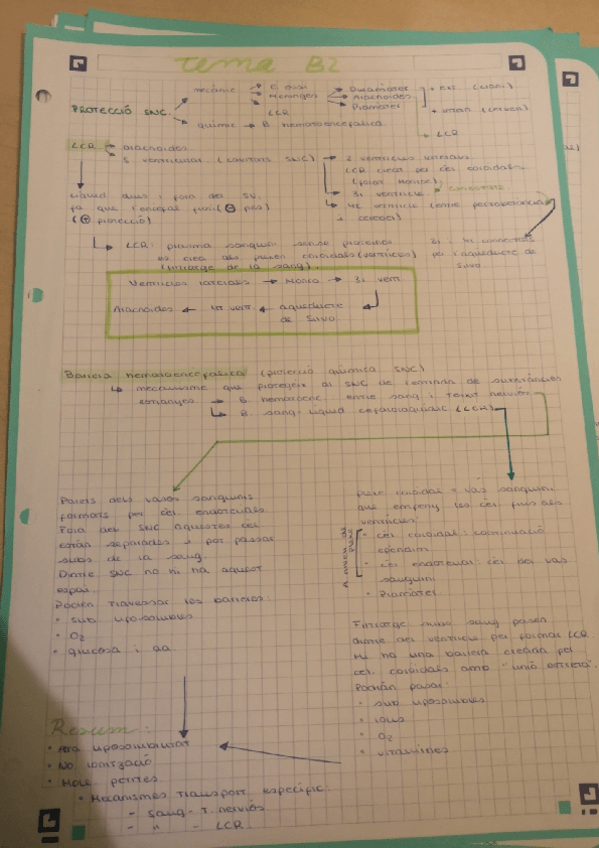 tema B2
PROTECCIÓ SNC
mecànic → Crani
Meninges → Duramàter
Aracnoides
Piamàter
+ ext.
+ intern (cervell)
LCR
química → B. hematoencefàlica
LCR
LCR → aracnoides
→ 5 ventriculars (cavitats SNC) → 2 ventricles laterals
LCR creat per cèl coroidals
(forat Monro).
3r ventricle
connectats
4t ventricle (entre
i cerebel)
líquid dins i fora del SN,
fa que l'encèfal floti (- pes)
(+ protecció)
LCR: plasma sanguini sense proteïnes
es crea als plexes coroidals (ventricles)
(filtratge de la sang).
3r i 4t connectats
per l'aqüeducte de
Silvio
Ventricles laterals → Monro → 3r vent
Aracnoides ← 4t vent ← aqüeducte
de Silvio
Barrera hematoencefàlica (protecció química SNC)
↳ mecanisme que protegeix al SNC de l'entrada de substàncies
estranyes → B. hematoenc. entre sang i teixit nerviós
↳ B. sang-líquid cefaloraquidi (LCR)
Parets dels vasos sanguinis
formats per cèl endotelials
Fora del SNC aquestes cèl
estan separades i pot passar
subs de la sang.
Dintre SNC no hi ha aquest
espai.
Poden travessar les barreres:
• sub liposolubles
• O2
• glucosa i aa
plexe coroidal = vas sanguini
que empeny les cèl fins als
ventricles:
• cèl coroidal: continuació
epèndim
• cèl endotelial: cèl del vas
sanguini
• Piamàter
Filtratge sang passen
dintre del ventricle per formar LCR
Hi ha una barrera creada per
cèl. coroidals amb "unió estreta".
Podran passar:
• sub liposolubles
• ions
• O2
• vitamines
Resum:
• Alta liposolubilitat
• No ionització
• Molè petites
• Mecanismes transport específic:
- sang - T. nerviós
- " - LCR.